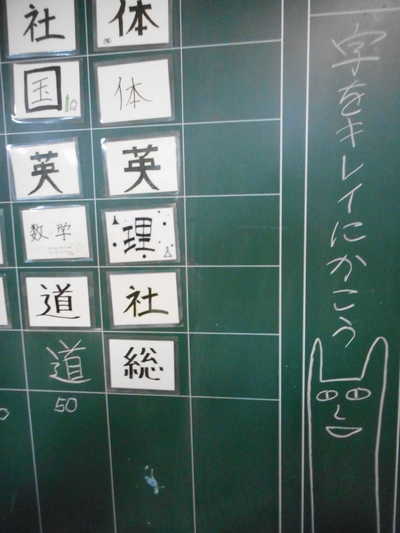 字をキレイにかこう
体
体
英
理
社
総
社
国
英
数学
道
道
50